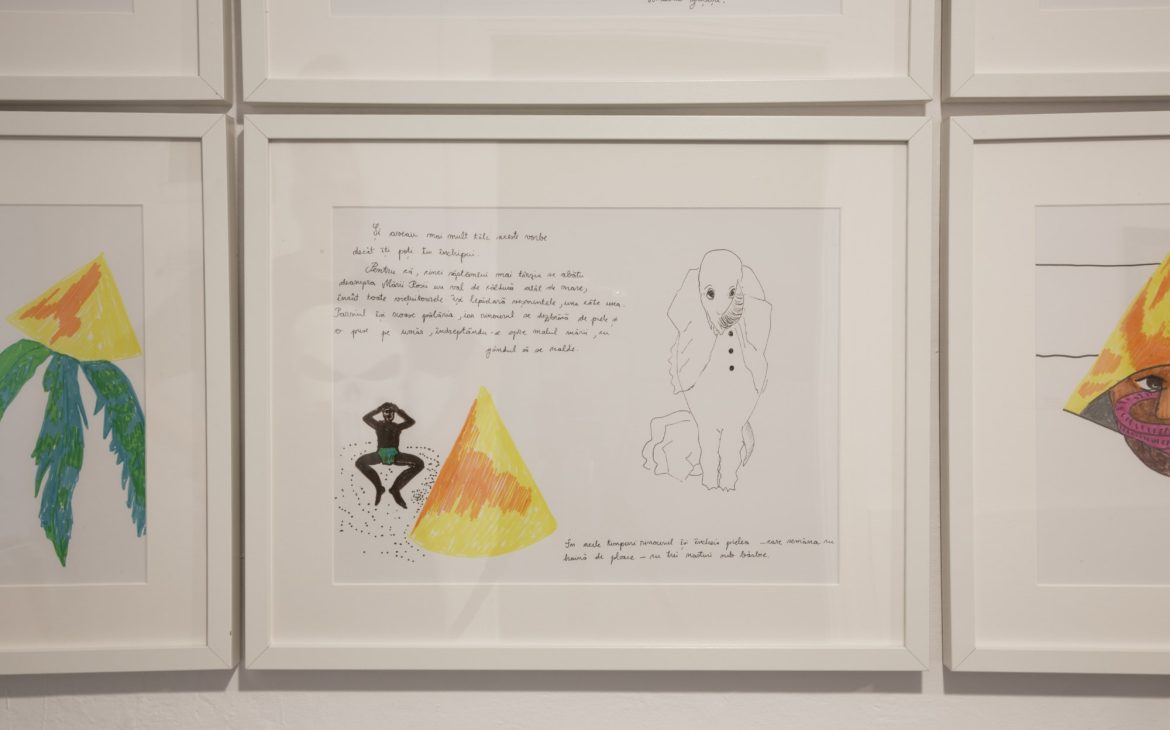 Și aveau mai mult tâlc aceste vorbe
decât îți poți tu închipui.
Pentru că, cinci săptămâni mai târziu se abătu
deasupra Mării Roșii un val de căldură atât de mare,
încât toate viețuitoarele își lepădară veșmintele, una câte una.
Parsul își scoase pălăria, iar rinocerul se dezbrăcă de piele și
o puse pe umăr, îndreptându-se spre malul mării, cu
gândul să se scalde.
În acele timpuri rinocerul își încheia pielea – care semăna cu
haină de ploaie – cu trei nasturi sub bărbie.